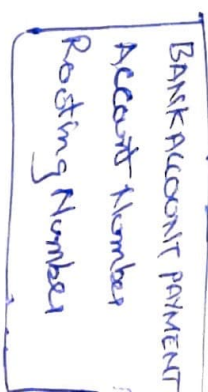 BANKACCOUNT PAYMENT
Account Number
Routing Number